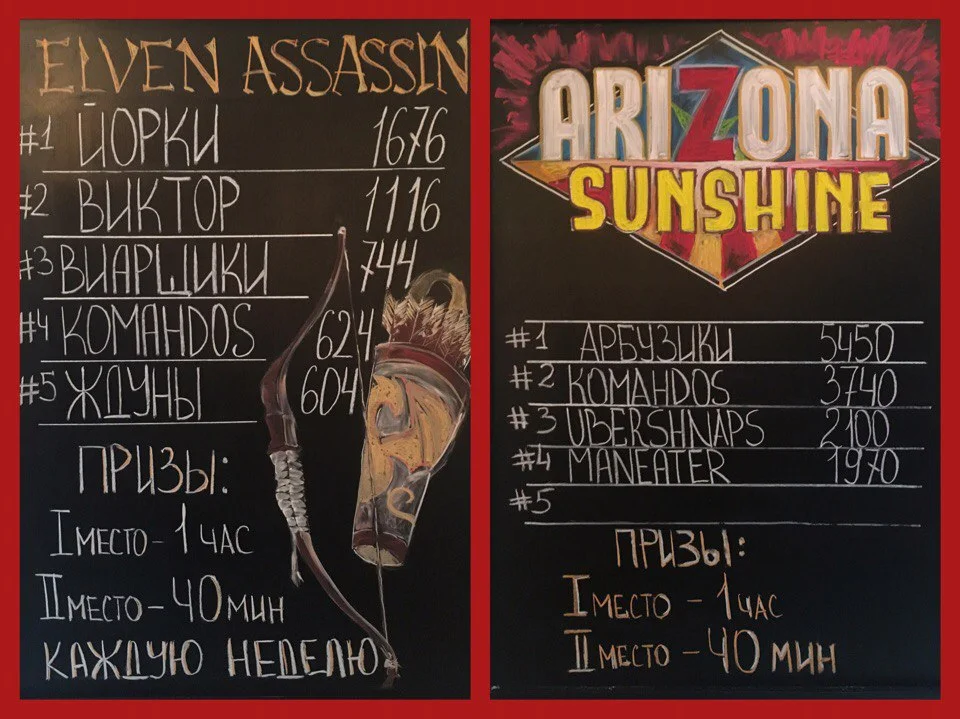 ELVEN ASSASSIN
#1 ЙОРКИ 1676
#2 ВИКТОР 1116
#3 ВИАРЩИКИ 744
#4 KOMANDOS 624
#5 ЖДУНЫ 604
ПРИЗЫ:
I МЕСТО - 1 ЧАС
II МЕСТО - 40 МИН
КАЖДУЮ НЕДЕЛЮ
ARIZONA
SUNSHINE
#1 АРБУЗИКИ 5450
#2 KOMANDOS 3740
#3 UBERSHNAPS 2100
#4 MANEATER 1970
#5
ПРИЗЫ:
I МЕСТО - 1 ЧАС
II МЕСТО - 40 МИН